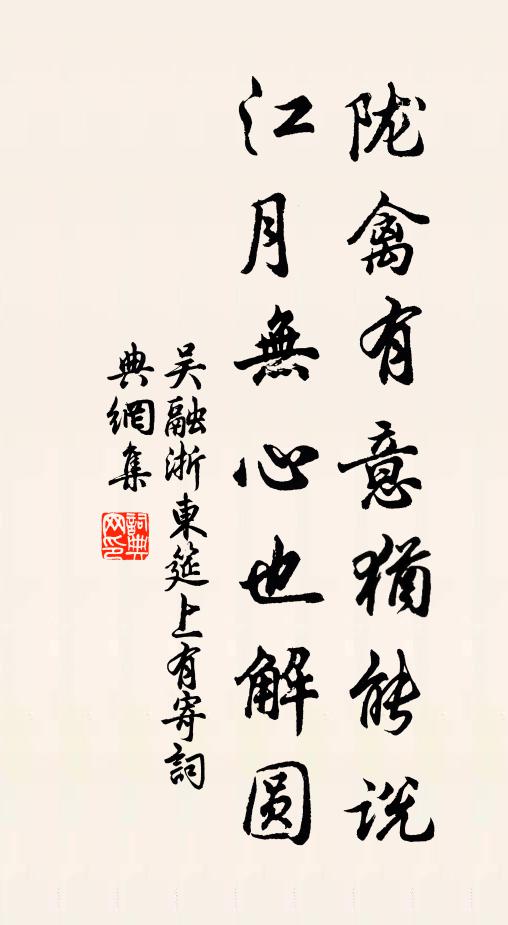 陇禽有意犹能说
江月無心也解圆
吴融浙東筵上有寄詞
典網集
詞典网印